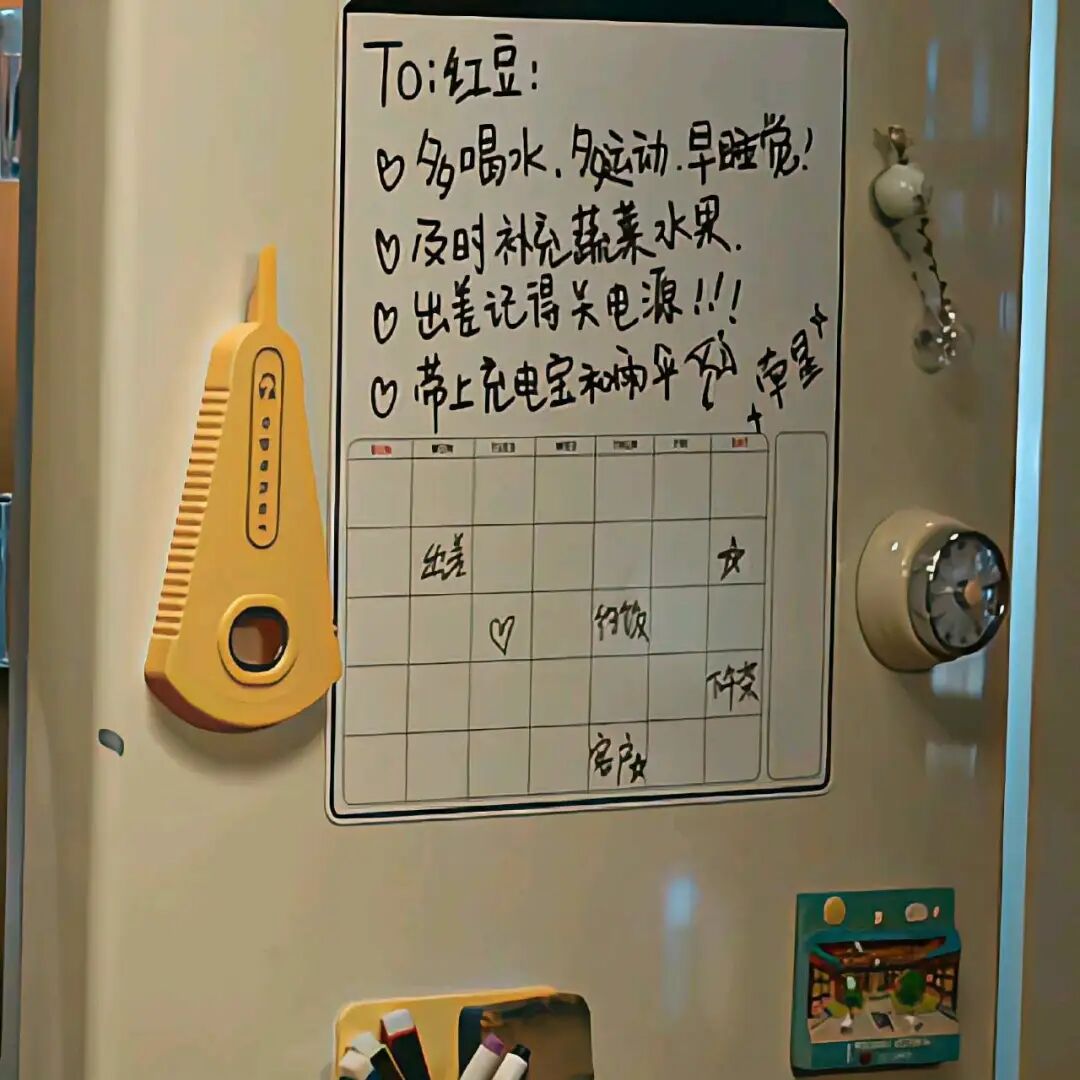 To:红豆:
多喝水.多运动.早睡觉!
及时补充蔬菜水果.
出差记得关电源!!!
带上充电宝和雨伞
南星
出差
约饭
下午茶
客户